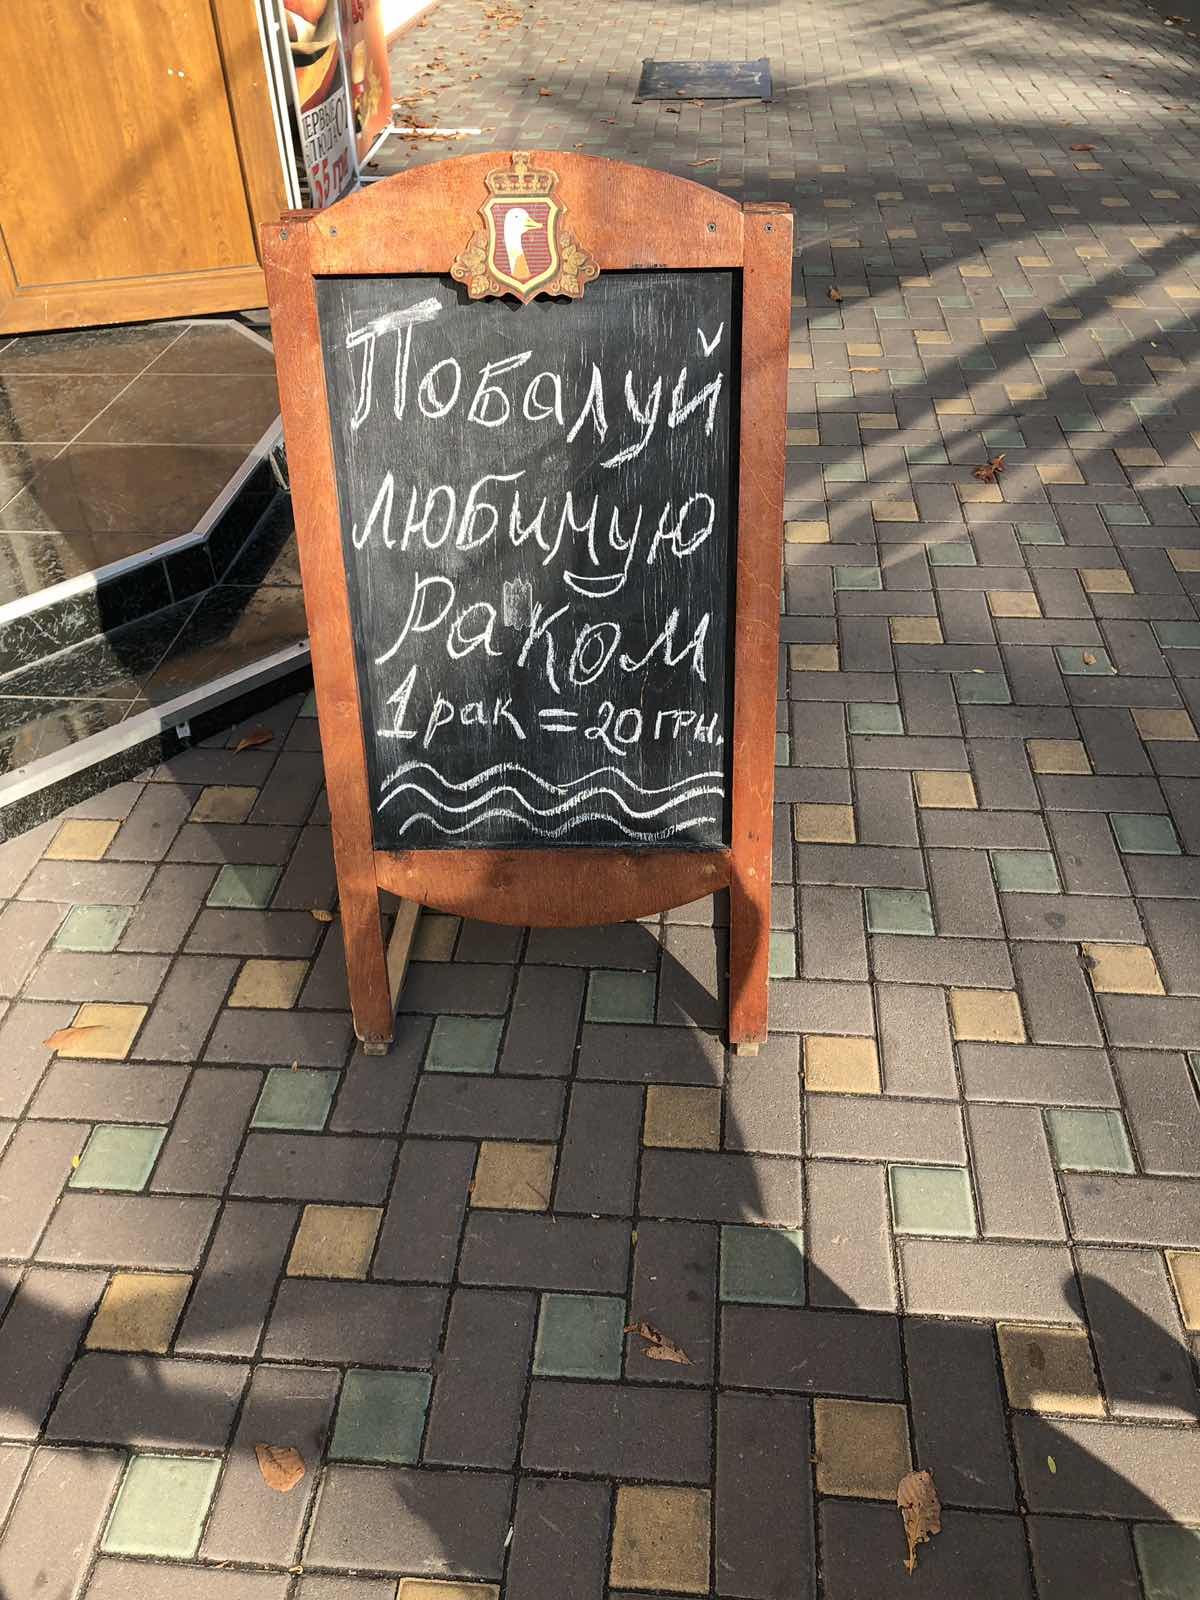 Побалуй
любимую
Раком
1 рак = 20 грн.
55 грн